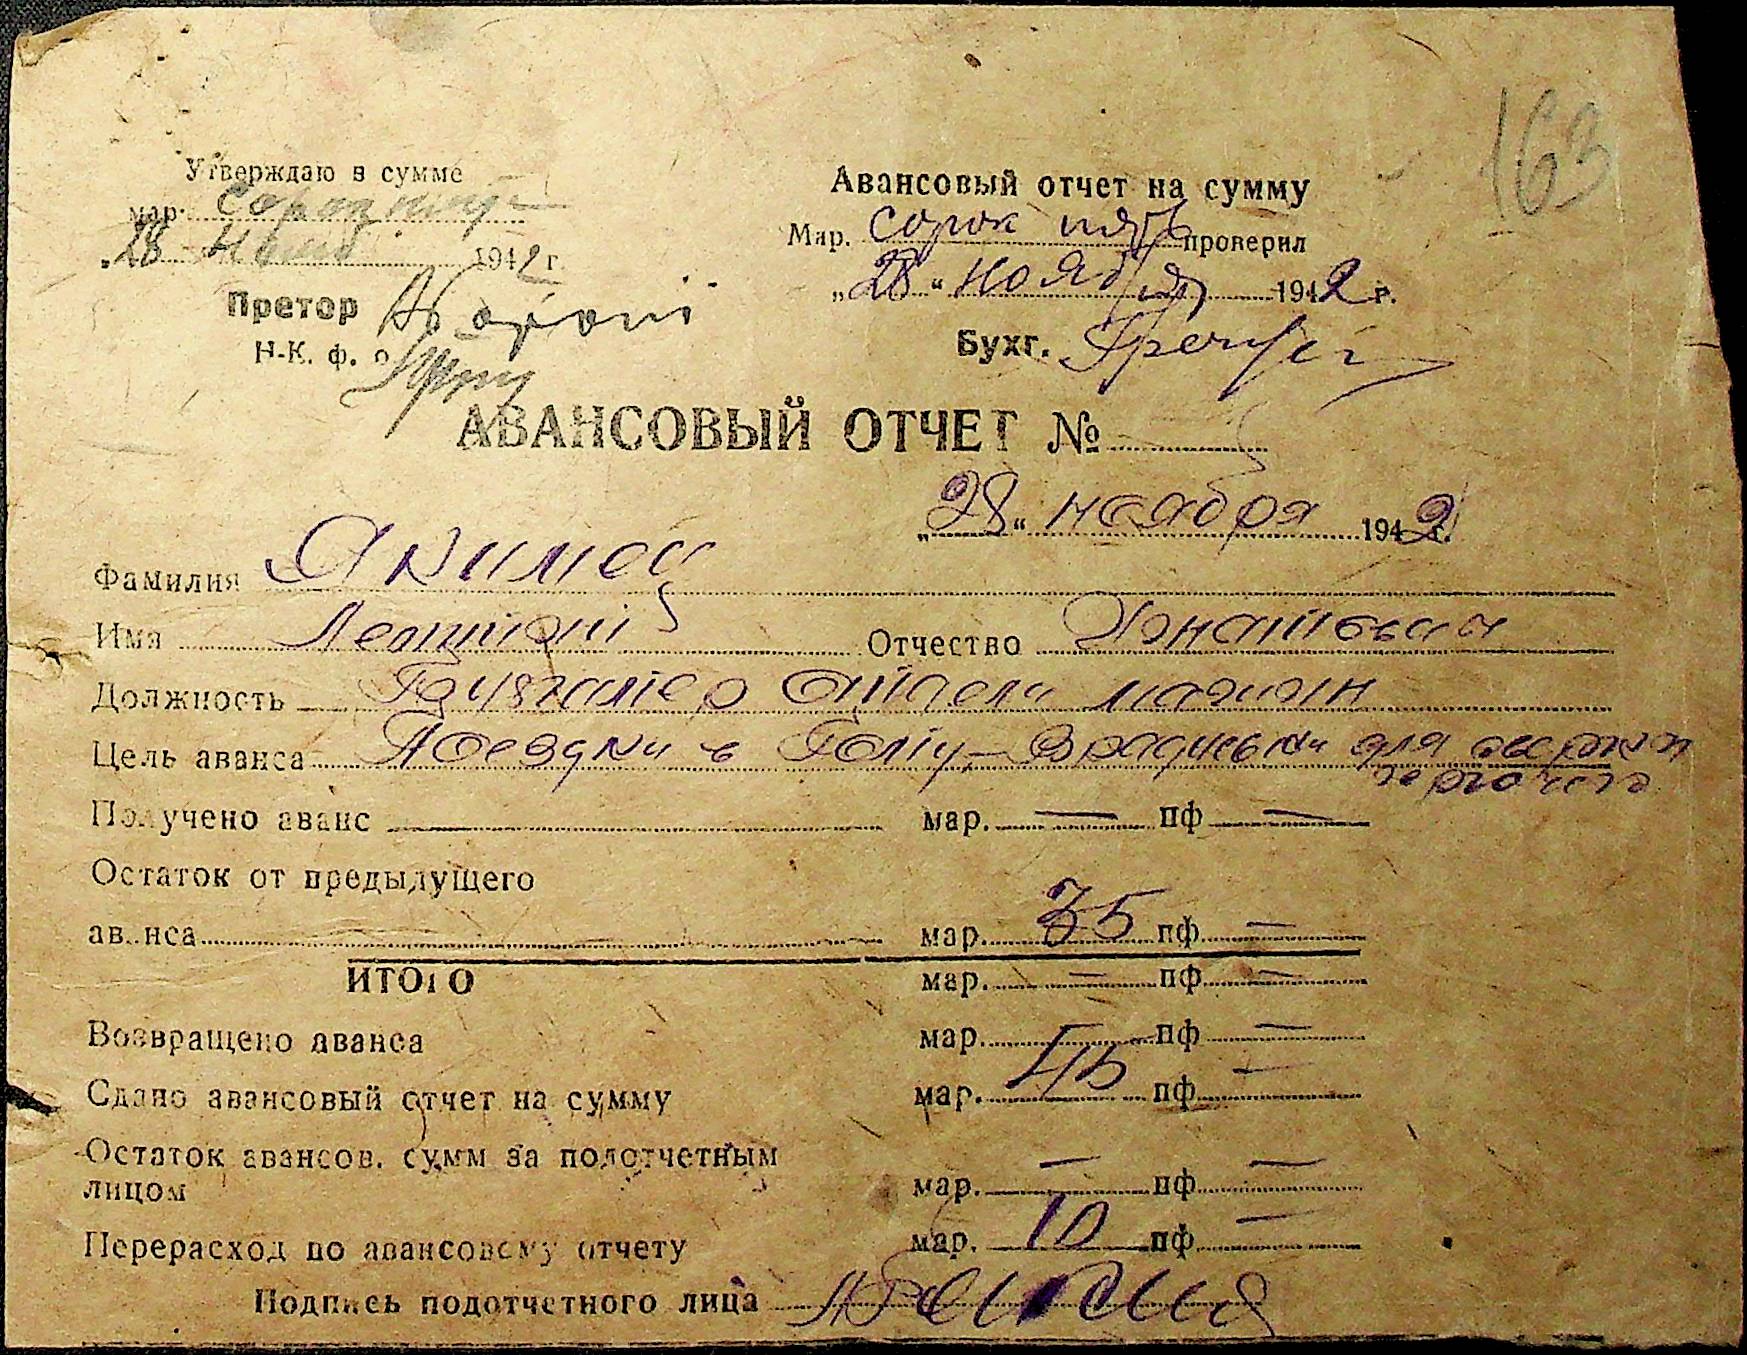 163
Утверждаю в сумме
мар. сорок пять
„28 нояб 1942 г.
Претор
Н-К. ф. о.
Авансовый отчет на сумму
Мар. сорок пять проверил
„28“ ноября 1942 г.
Бухг.
АВАНСОВЫЙ ОТЧЕТ №
„28“ ноября 1942 г.
Фамилия Якимец
Имя Отчество Игнатович
Должность
Цель аванса Поездки в Голту, Врадиевки для
Получено аванс мар. — пф —
Остаток от предыдущего
аванса мар. 35 пф —
ИТОГО мар. — пф —
Возвращено аванса мар. пф —
Сдано авансовый отчет на сумму мар. 45 пф —
Остаток авансов. сумм за подотчетным
лицом мар. — пф —
Перерасход по авансовому отчету мар. 10 пф —
Подпись подотчетного лица